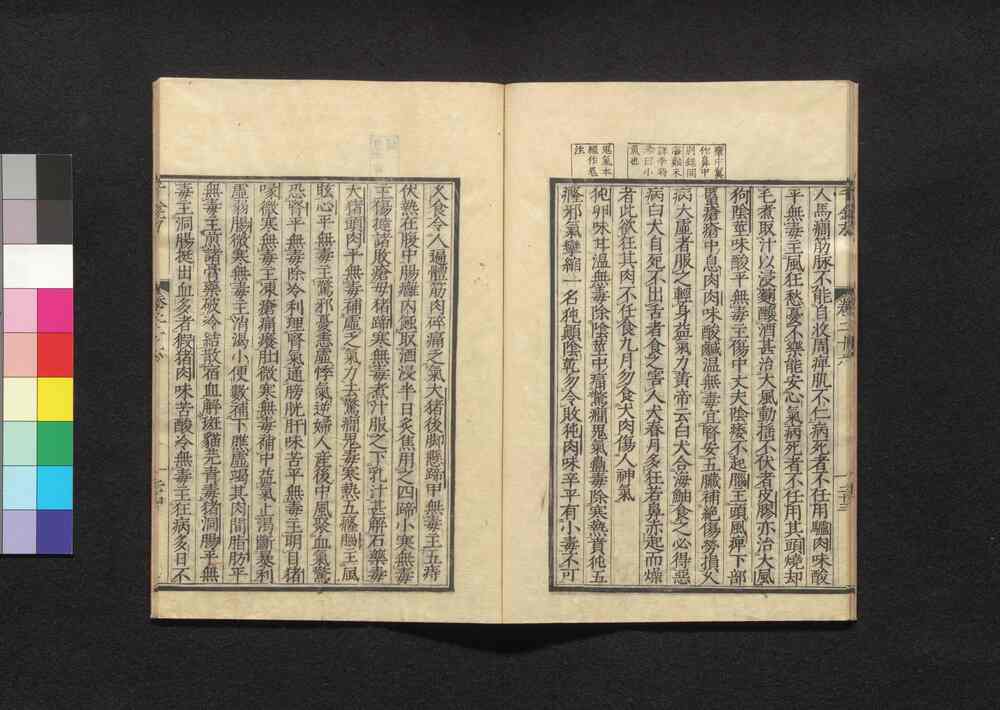 人馬癇筋脉不能自收周痺肌不仁病死者不任用驢肉味酸
平無毒主風狂愁憂不樂能安心氣病死者不任用其頭燒却
毛煮取汁以浸麴釀酒甚治大風動揺不伏者皮膠亦治大風
狗陰莖味酸平無毒主傷中丈夫陰痿不起腦主頭風痺下部
䘌瘡瘡中息肉肉味酸鹹温無毒宜腎安五臓補絶傷勞損久
病大虛者服之輕身益氣力黄帝云白犬合海鮋食之必得惡
病白犬自死不出舌者食之害人犬春月多狂若鼻赤起而燥
者此欲狂其肉不任食九月勿食犬肉傷人神氣
㹠卵味甘温無毒除陰莖中痛驚癇鬼氣蠱毒除寒熱賁㹠五
癃邪氣攣縮一名㹠顛陰乾勿令敗㹠肉味辛平有小毒不可
久食令人遍體筋肉碎痛乏氣大猪後脚懸蹄甲無毒主五痔
伏熱在腹中腸癰内蝕取酒浸半日炙焦用之四蹄小寒無毒
主傷撻諸敗瘡母猪蹄寒無毒煮汁服之下乳汁甚解石藥毒
大猪頭肉平無毒補虛乏氣力去驚癇鬼毒寒熱五癃腦主風
眩心平無毒主驚邪憂恚虛悸氣逆婦人産後中風聚血氣驚
恐腎平無毒除冷利理腎氣通膀胱肝味苦平無毒主明目猪
喙微寒無毒主凍瘡痛癢肚微寒無毒補中益氣止渴斷暴利
虛弱腸微寒無毒主消渴小便數補下膲虛竭其肉間脂肪平
無毒主煎諸膏藥破冷結散宿血解斑猫芫青毒猪洞腸平無
毒主洞腸挺出血多者猳猪肉味苦酸冷無毒主狂病多日不